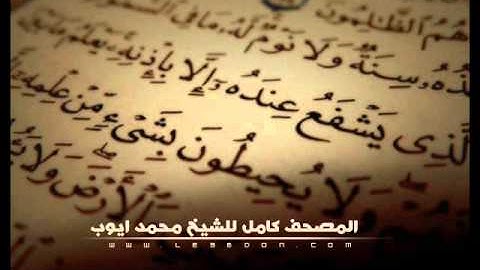 هُمُ ٱلظَّٰلِمُونَ
سِنَةٌ وَلَا نَوْمٌ لَّهُۥ مَا فِى
لَّذِى يَشْفَعُ عِندَهُۥٓ إِلَّا بِإِذْنِهِۦ يَعْلَمُ مَا
وَلَا يُحِيطُونَ بِشَىْءٍ مِّنْ عِلْمِهِۦٓ
ٱلْأَرْضَ وَلَا
المصحف كامل للشيخ محمد ايوب